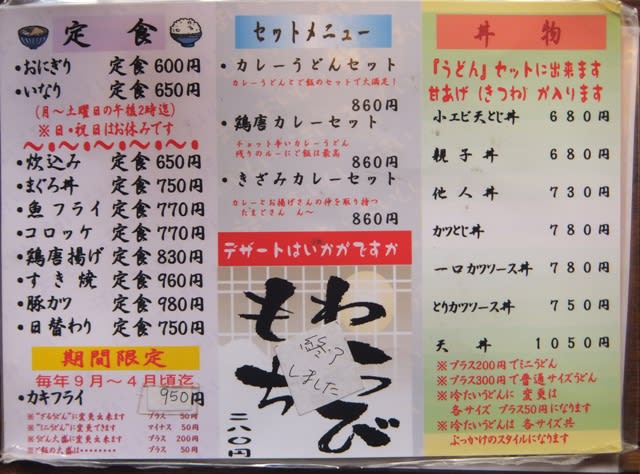 定食
・おにぎり 定食 600円
・いなり 定食 650円
(月～土曜日の午後2時迄)
※日・祝日はお休みです
・炊込み 定食 650円
・まぐろ丼 定食 750円
・魚フライ 定食 770円
・コロッケ 定食 770円
・鶏唐揚げ 定食 830円
・すき焼 定食 960円
・豚カツ 定食 980円
・日替わり 定食 750円
期間限定
毎年9月～4月頃迄
・カキフライ 950円
※"ざるうどん"に変更出来ます プラス 50円
※"ミニうどん"に変更できます マイナス 50円
※うどん大盛に変更出来ます プラス 200円
※ご飯の大盛は・・・・・・・・ プラス 50円
セットメニュー
・カレーうどんセット
カレーうどんとご飯のセットで大満足!
860円
・鶏唐カレーセット
チョット辛いカレーうどん
残りのルーにご飯は最高
860円
・きざみカレーセット
カレーとお揚げさんの仲を取り持つ
たまごさん ん～
860円
デザートはいかがですか
わらび
もち
二八〇円
終了
しました
丼物
『うどん』セットに出来ます
甘あげ(きつね)が入ります
小エビ天とじ丼 680円
親子丼 680円
他人丼 730円
カツとじ丼 780円
一口カツソース丼 780円
とりカツソース丼 750円
天丼 1050円
※プラス200円でミニうどん
※プラス300円で普通サイズうどん
※冷たいうどんに 変更は
各サイズ プラス50円になります
※冷たいうどんは 各サイズ共
ぶっかけのスタイルになります